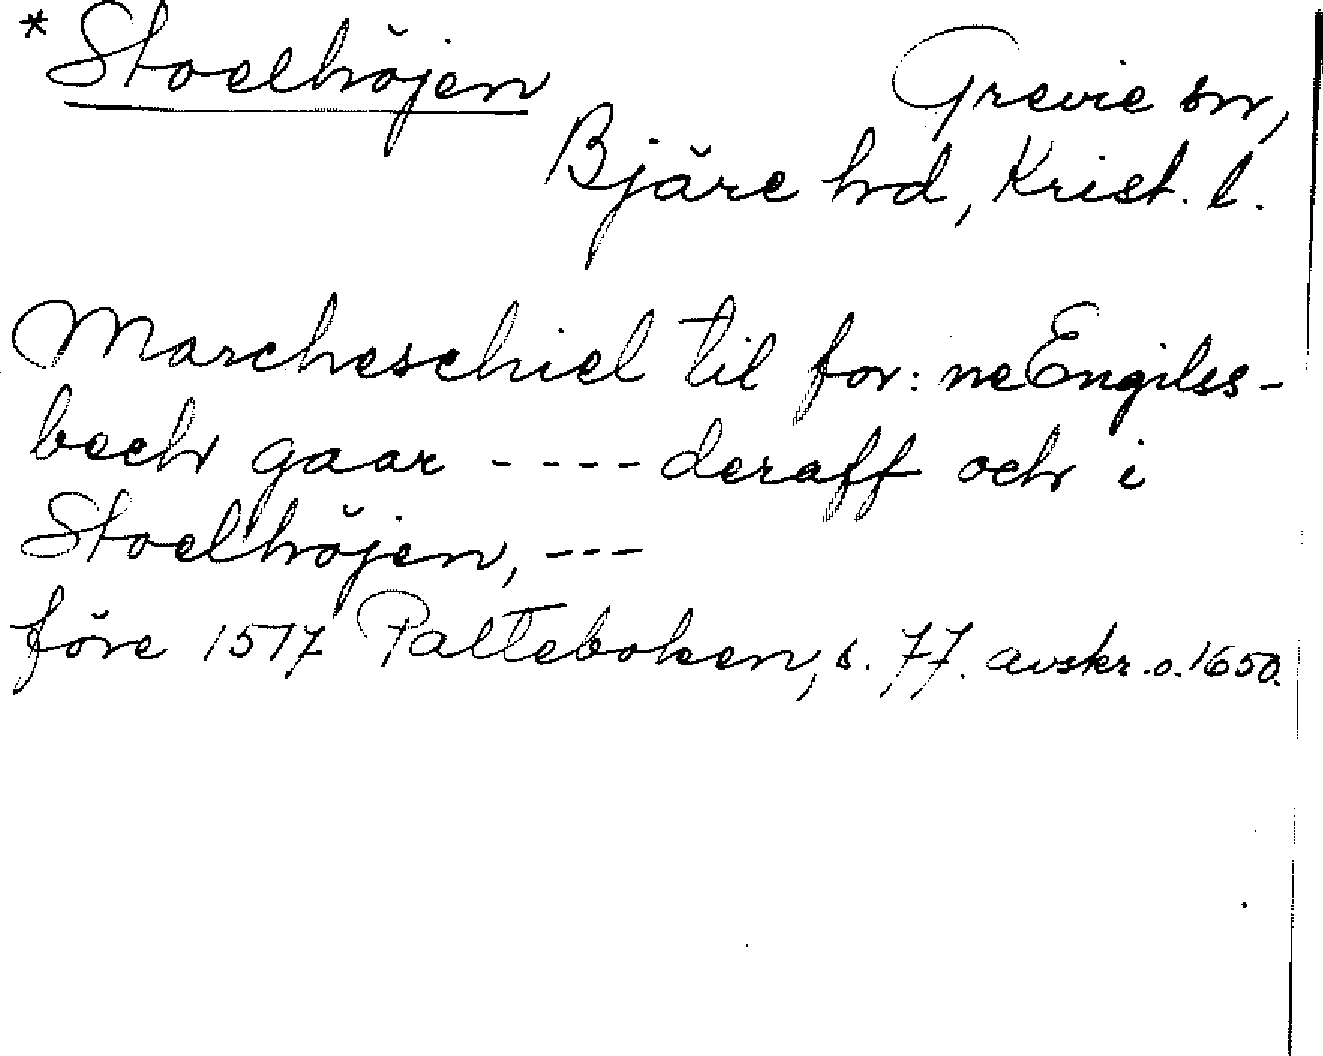 * Stoelhöjen
Grevie sn,
Bjäre hd, Krist. l.
Marcheschiel til for: ne Engilss-
bech gaar ---- deraff och i
Stoelhöjen, ---
före 1517 Palteboken, s. 77. avskr. o. 1650.